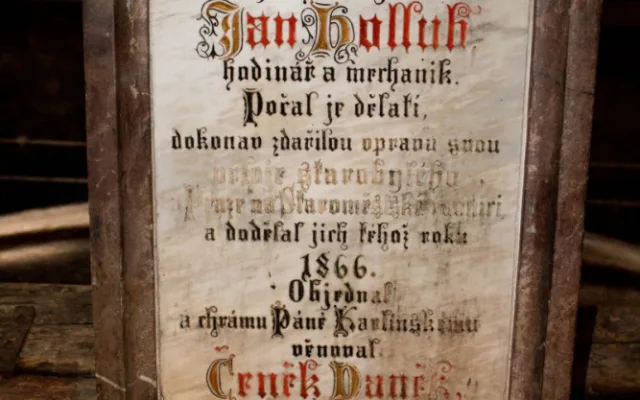 Jan Hollub,
hodinář a mechanik.
Počal je dělati,
dokonav zdařilou opravu svou
orloje starobylého
v Praze na Staroměstské radnici,
a dodělal jich téhož roku
1866.
Objednal
a chrámu Páně Karlínskému
věnoval
Čeněk Daněk,